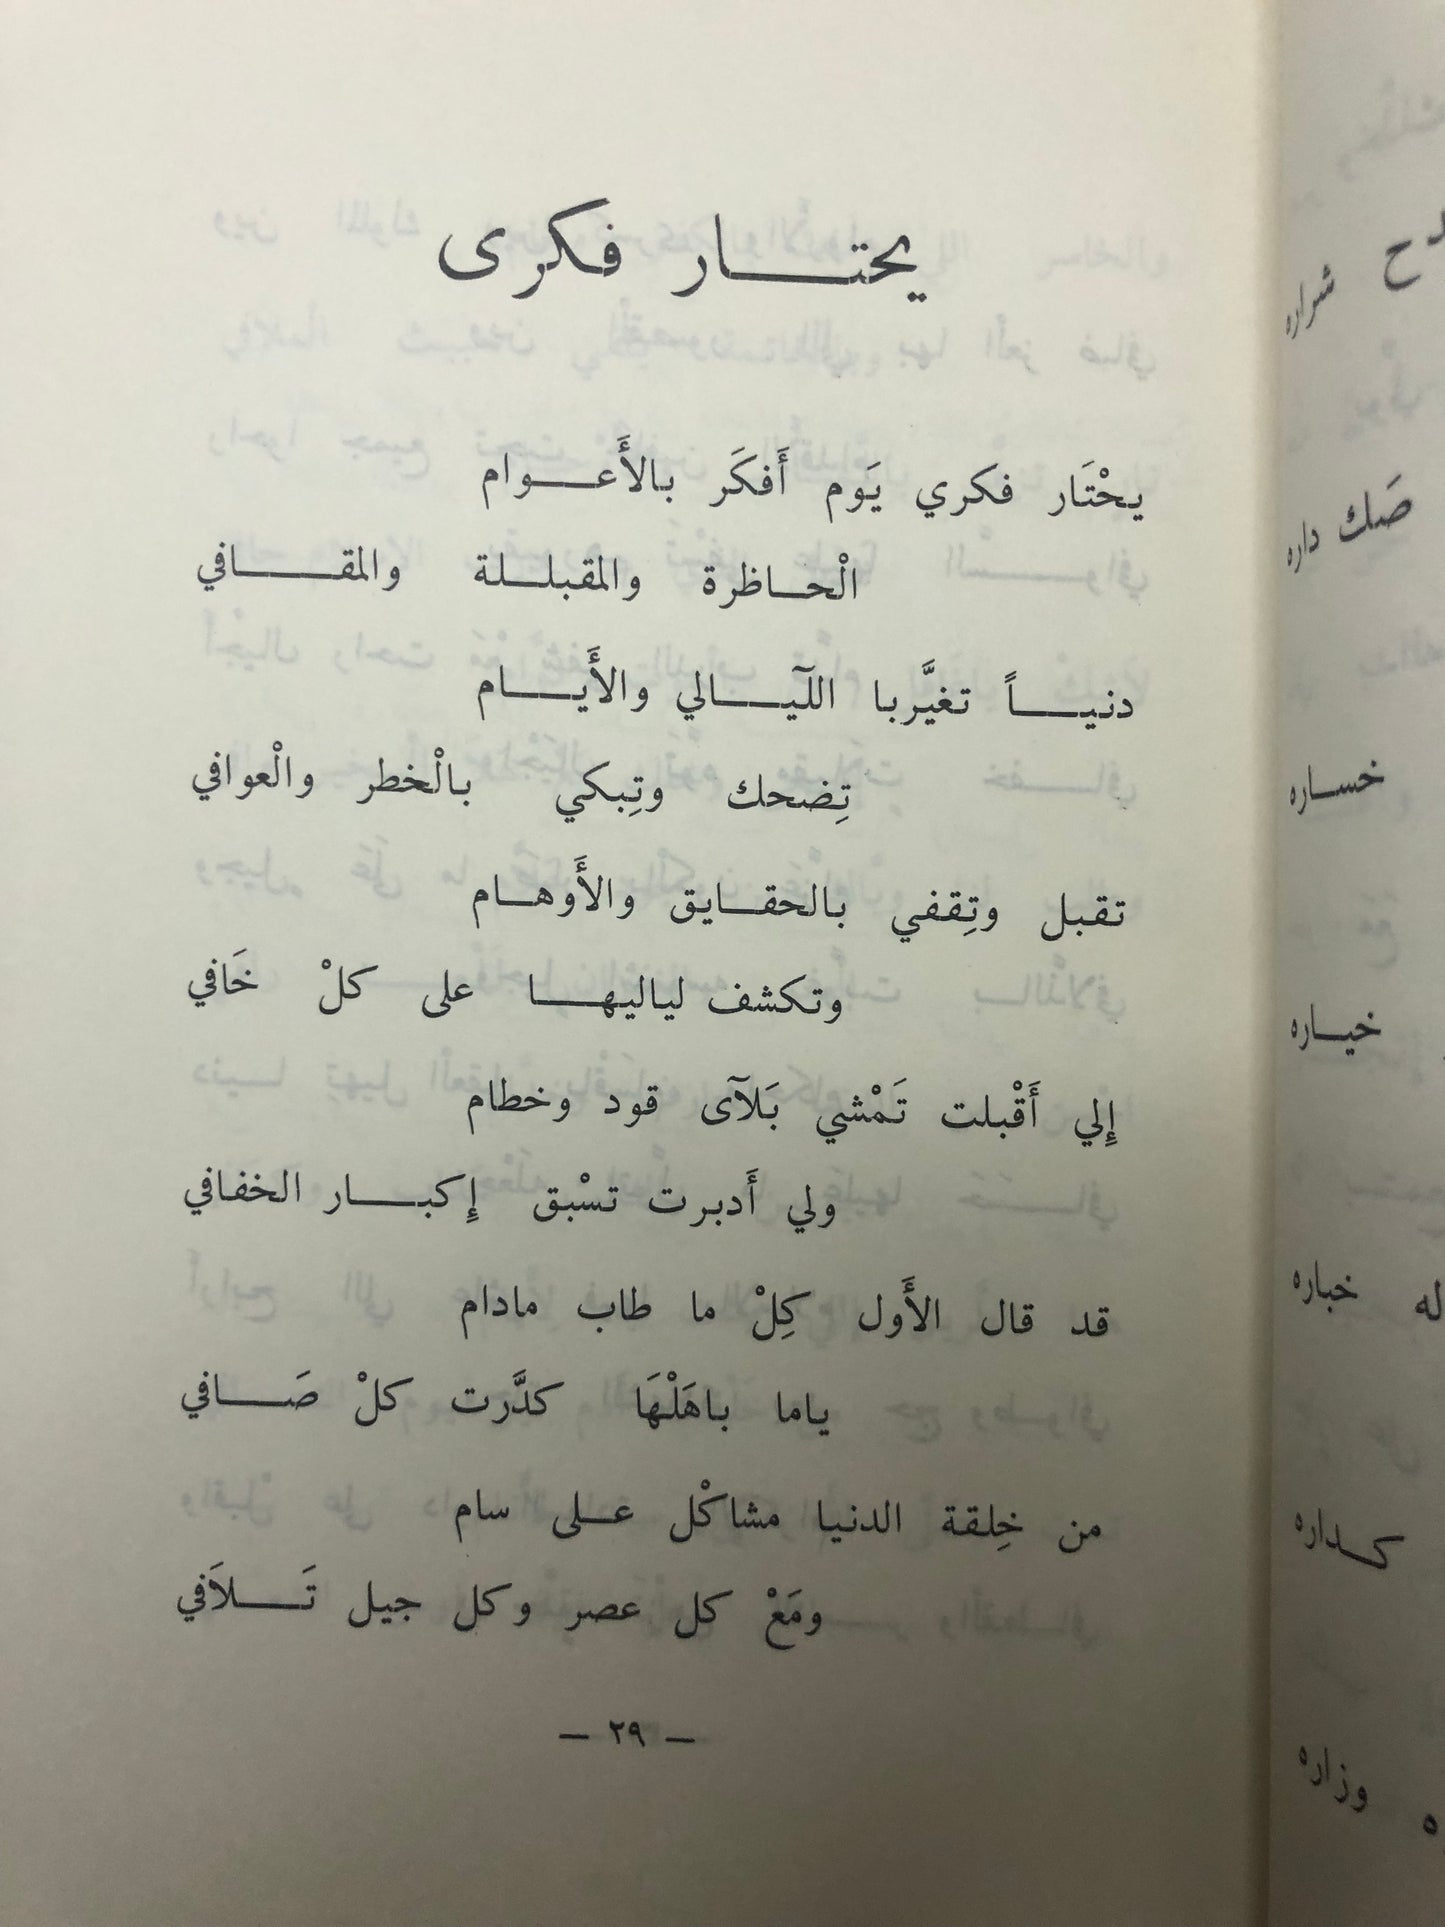 يحتـــار فكرى
يحْتَار فكري يَوم أَفكَر بالأَعـــوام
الْحـاظرة والمقبلـلة والمقـــافي
دنيـــاً تغيَّربا اللآيـــالي والأَيـــام
تِضحك وتِبكي بالْخطر والْعوافي
تقبل وتِقفي بالحقـايق والأَوهـام
وتكشف لياليهـــا على كلْ خَافي
إِلي أَقْبلت تَمْشي بَلآى قود وخطام
ولي أَدبرت تسْبق إِكبـــار الخفافي
قد قال الأَول كِلْ ما طاب مادام
ياما باهَلْهَا كدَّرت كلْ صَـــافي
من خِلقة الدنيا مشاكْل عـلى سام
ومَعْ كل عصر وكل جيل تَـــلاَفي
— ٢٩ —
ح شراره
صَك داره
خسـاره
خيـاره
له خباره
كـداره
وزاره